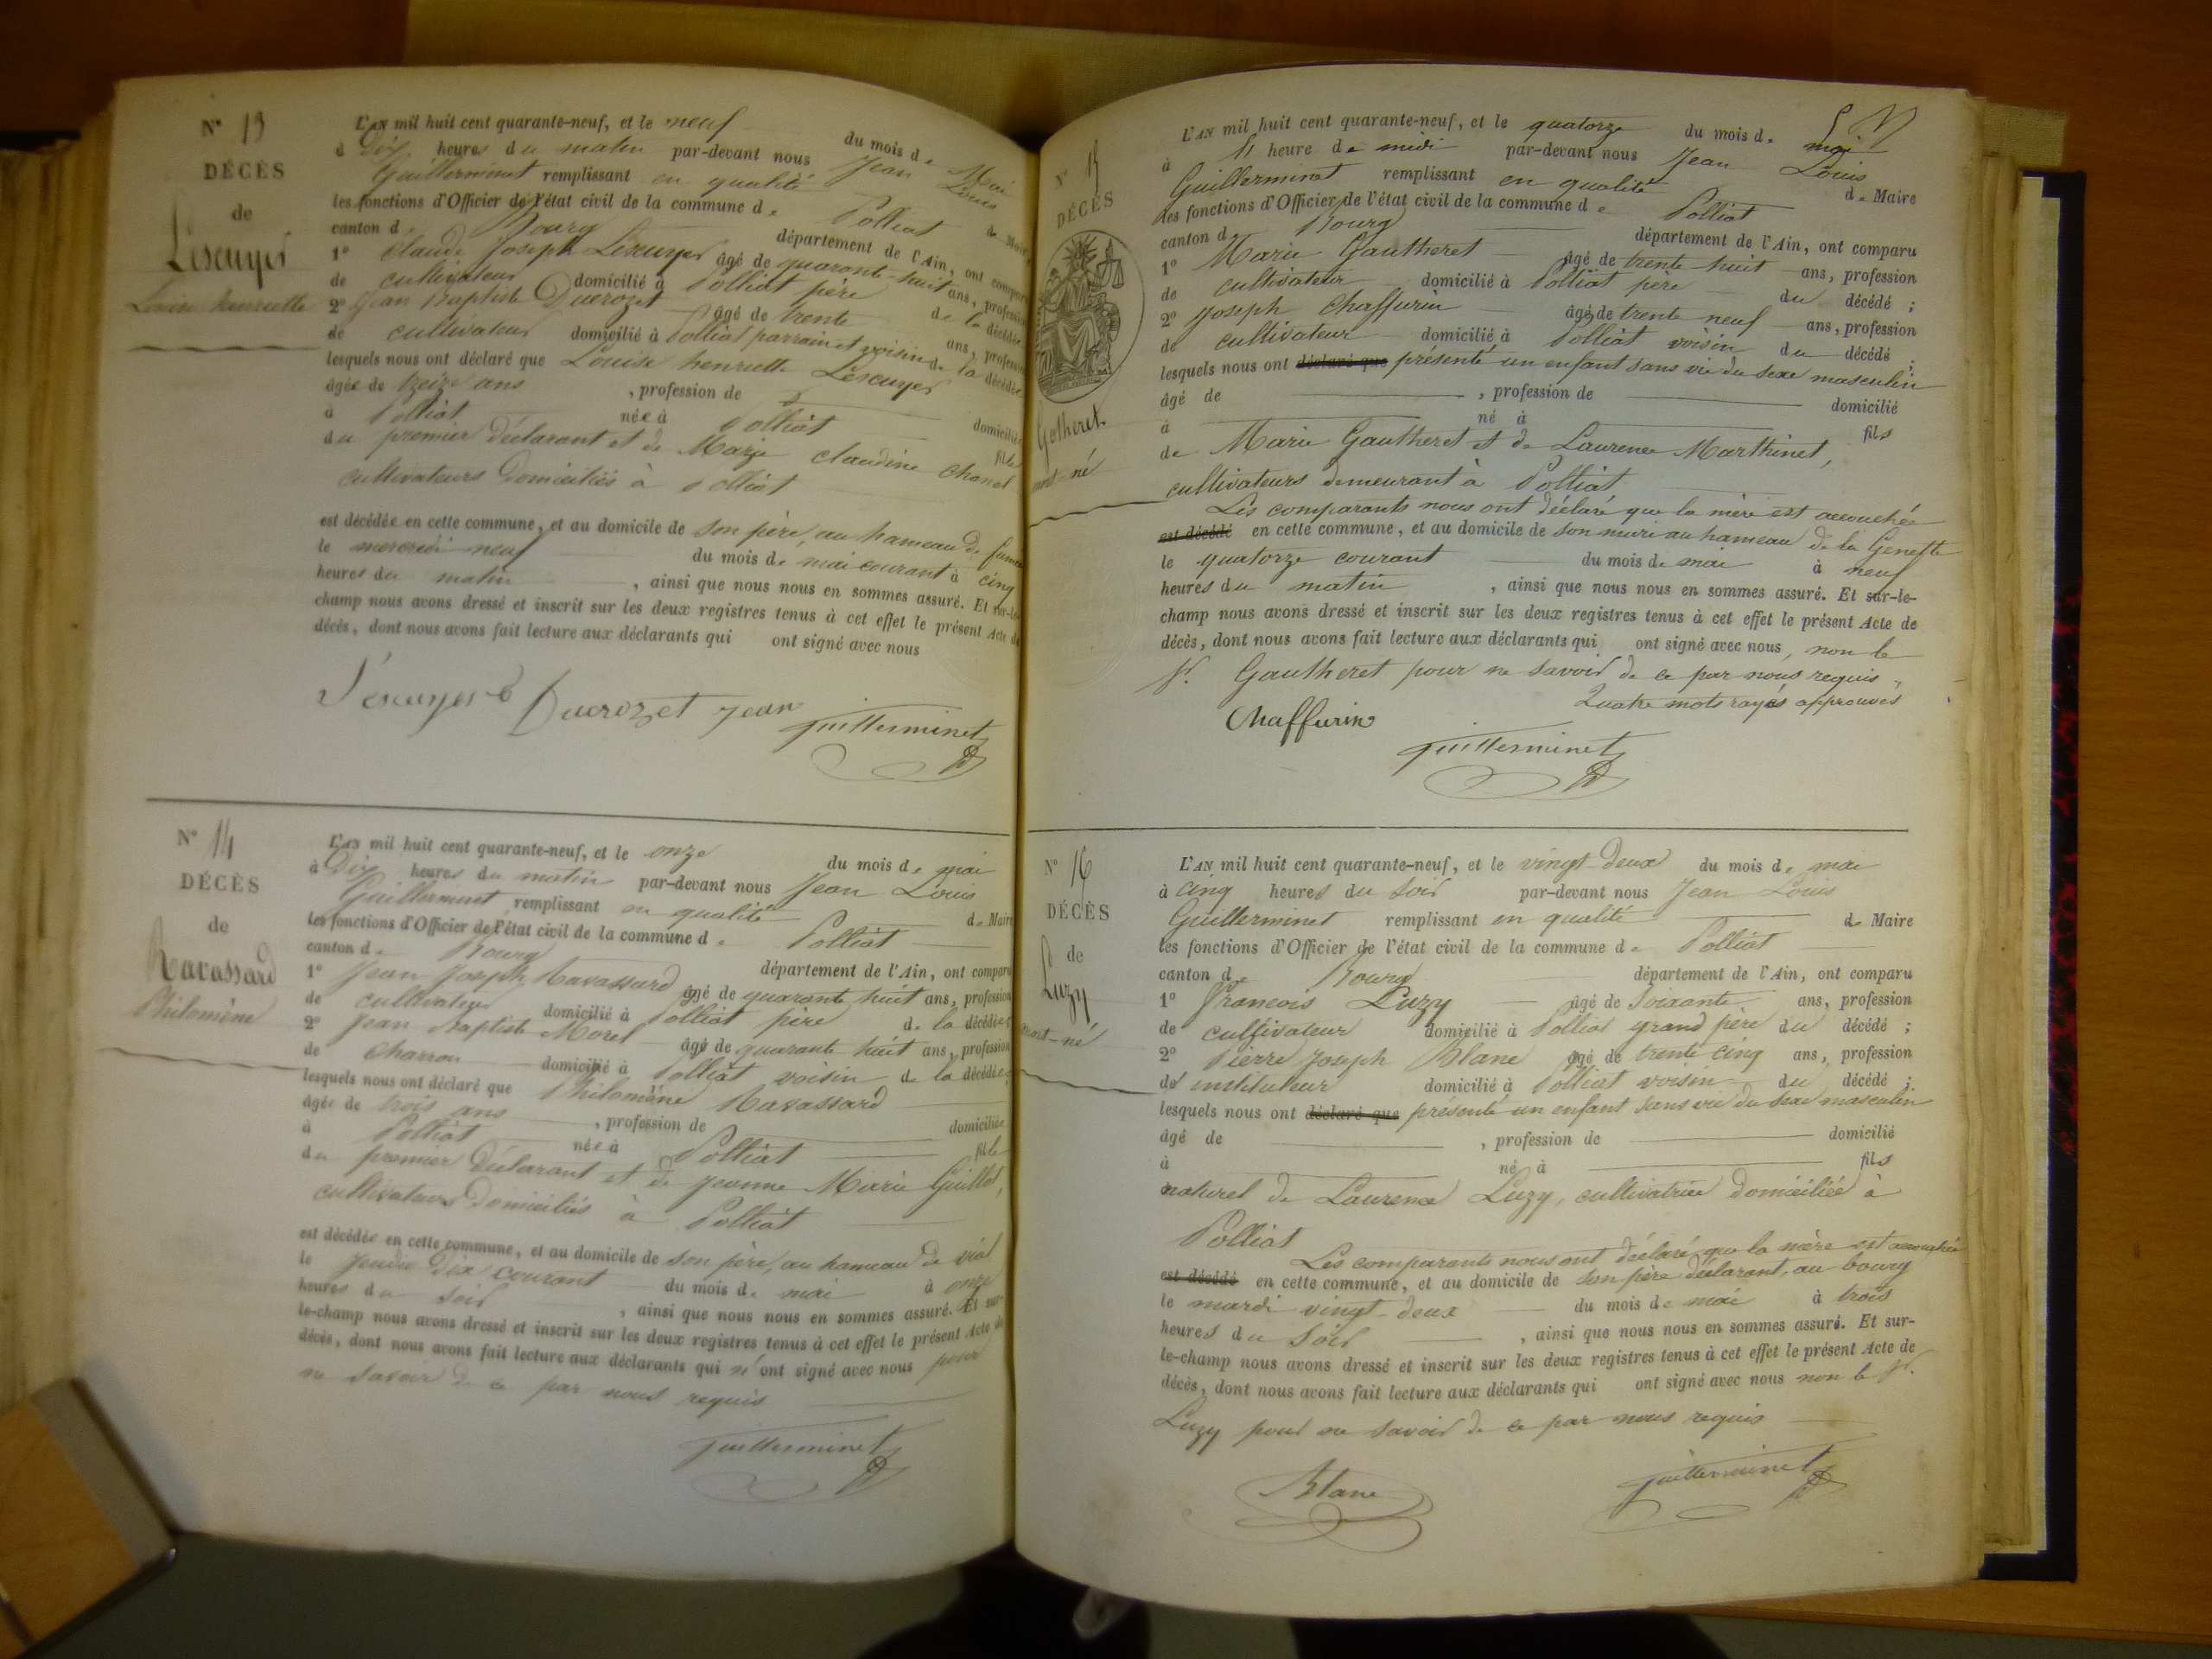 N° 13
DÉCÈS
de
Lescuyer
Louise henriette
L'AN mil huit cent quarante-neuf, et le neuf du mois de Mai
à Dix heures du matin par-devant nous Jean Louis
Guillerminet remplissant en qualité de Maire
les fonctions d'Officier de l'état civil de la commune de Polliat
canton de Bourg département de l'Ain, ont comparu
1° Claude Joseph Lescuyer âgé de quarante-huit ans, profession
de cultivateur domicilié à Polliat père de la décédée
2° Jean Baptiste Ducrozet âgé de trente ans, profession
de cultivateur domicilié à Polliat parrain et voisin de la décédée
lesquels nous ont déclaré que Louise henriette Lescuyer
âgée de treize ans, profession de domiciliée
à Polliat née à Polliat fille
du premier déclarant et de Marie claudine Chanel
cultivateurs Domiciliés à Polliat
est décédée en cette commune, et au domicile de son père, au hameau de
le mercredi neuf du mois de mai courant à cinq
heures du matin, ainsi que nous nous en sommes assuré. Et sur-le-
champ nous avons dressé et inscrit sur les deux registres tenus à cet effet le présent Acte de
décès, dont nous avons fait lecture aux déclarants qui ont signé avec nous
Lescuyer Ducrozet jean
guillerminet
N° 14
DÉCÈS
de
Ravassard
Philomène
L'AN mil huit cent quarante-neuf, et le onze du mois de mai
à Dix heures du matin par-devant nous Jean Louis
Guillerminet remplissant en qualité de Maire
les fonctions d'Officier de l'état civil de la commune de Polliat
canton de Bourg département de l'Ain, ont comparu
1° Jean Joseph Ravassard âgé de quarante huit ans, profession
de cultivateur domicilié à Polliat père de la décédée
2° Jean Baptiste Morel âgé de quarante huit ans, profession
de Charron domicilié à Polliat voisin de la décédée
lesquels nous ont déclaré que Philomène Ravassard
âgée de trois ans, profession de domiciliée
à Polliat née à Polliat fille
du premier Déclarant et de Jeanne Marie Guillot,
cultivateurs Domiciliés à Polliat
est décédée en cette commune, et au domicile de son père, au hameau de vial
le jeudi dix courant du mois de mai à onze
heures du soir, ainsi que nous nous en sommes assuré. Et sur-
le-champ nous avons dressé et inscrit sur les deux registres tenus à cet effet le présent Acte de
décès, dont nous avons fait lecture aux déclarants qui n'ont signé avec nous pour
ne savoir de ce par nous requis
guillerminet
N° 15
DÉCÈS
Gotheret
mort-né
L'AN mil huit cent quarante-neuf, et le quatorze du mois de mai
à 11 heure de midi par-devant nous Jean Louis
Guillerminet remplissant en qualité de Maire
les fonctions d'Officier de l'état civil de la commune de Polliat
canton de Bourg département de l'Ain, ont comparu
1° Marie Gautheret âgé de trente huit ans, profession
de cultivateur domicilié à Polliat père du décédé ;
2° Joseph Chaffurin âgé de trente neuf ans, profession
de cultivateur domicilié à Polliat voisin du décédé ;
lesquels nous ont déclaré que présenté un enfant sans vie du sexe masculin
âgé de , profession de domicilié
à né à fils
de Marie Gautheret et de Laurence Marthinet,
cultivateurs demeurant à Polliat
Les comparants nous ont déclaré que la mère est accouchée
est décédé en cette commune, et au domicile de son mari au hameau de la Genette
le quatorze courant du mois de mai à neuf
heures du matin, ainsi que nous nous en sommes assuré. Et sur-le-
champ nous avons dressé et inscrit sur les deux registres tenus à cet effet le présent Acte de
décès, dont nous avons fait lecture aux déclarants qui ont signé avec nous, non le
Sr. Gautheret pour ne savoir de ce par nous requis,
Quatre mots rayés approuvés
Chaffurin
guillerminet
N° 16
DÉCÈS
de
Luzy
mort-né
L'AN mil huit cent quarante-neuf, et le vingt-deux du mois de mai
à cinq heures du soir par-devant nous Jean Louis
Guillerminet remplissant en qualité de Maire
les fonctions d'Officier de l'état civil de la commune de Polliat
canton de Bourg département de l'Ain, ont comparu
1° François Luzy âgé de soixante ans, profession
de cultivateur domicilié à Polliat grand père du décédé ;
2° Pierre Joseph Blanc âgé de trente cinq ans, profession
de instituteur domicilié à Polliat voisin du décédé ;
lesquels nous ont déclaré que présenté un enfant sans vie du sexe masculin
âgé de , profession de domicilié
à né à fils
naturel de Laurence Luzy, cultivatrice domiciliée à
Polliat
Les comparants nous ont déclaré que la mère est accouchée
est décédé en cette commune, et au domicile de son père déclarant, au bourg
le mardi vingt-deux du mois de mai à trois
heures du soir, ainsi que nous nous en sommes assuré. Et sur-
le-champ nous avons dressé et inscrit sur les deux registres tenus à cet effet le présent Acte de
décès, dont nous avons fait lecture aux déclarants qui ont signé avec nous non le Sr.
Luzy pour ne savoir de ce par nous requis
Blanc
guillerminet